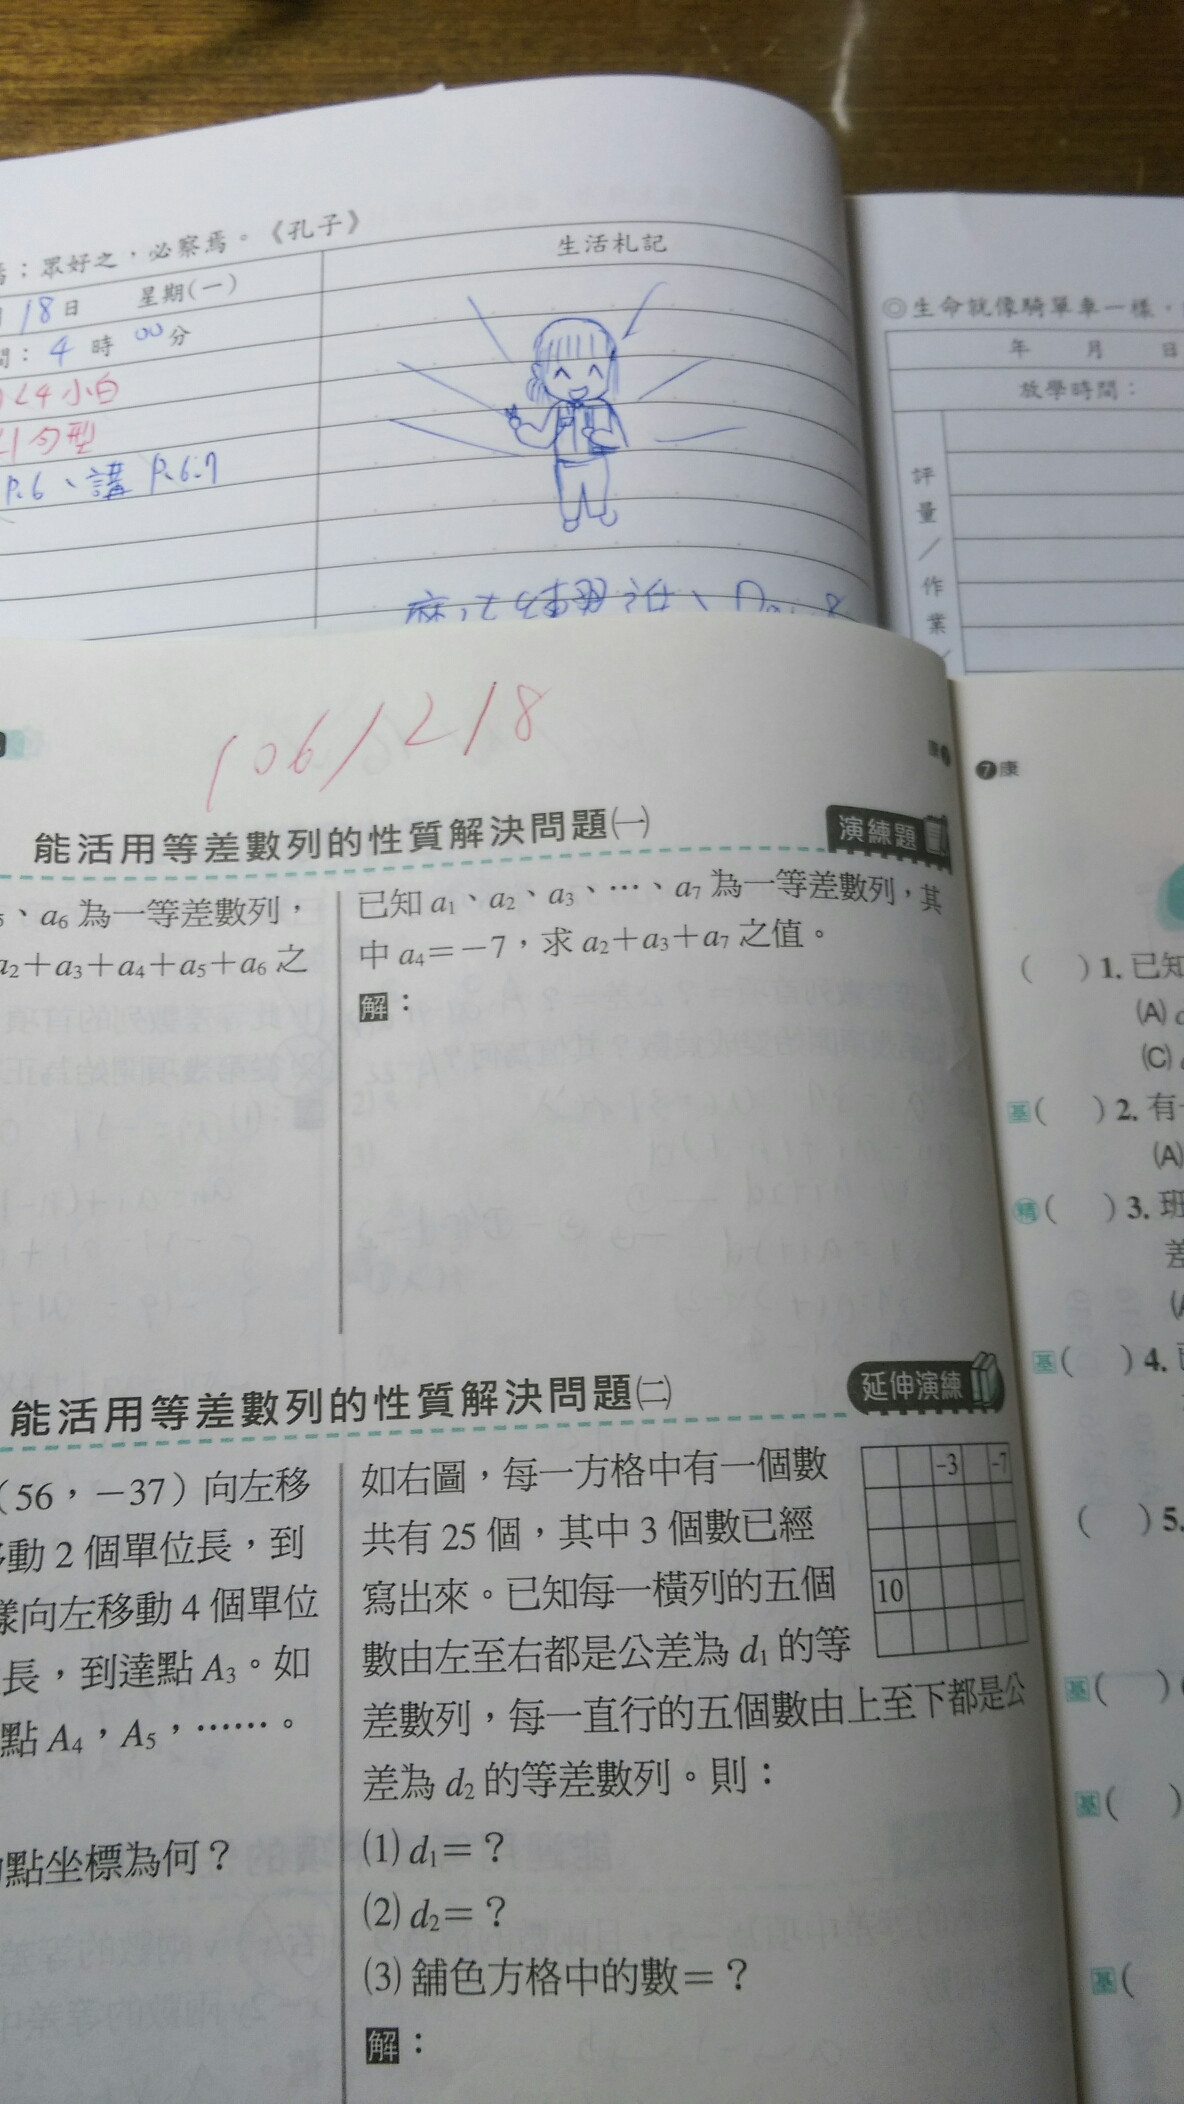 ；眾好之，必察焉。《孔子》
18日 星期(一)
：4時00分
生活札記
小白
句型
P.6、講 P.6.7
◎生命就像騎單車一樣，
年 月 日
放學時間：
評量／作業／
106/2/8
康7
7康
能活用等差數列的性質解決問題㈠
演練題
、a₆ 為一等差數列，
a₂＋a₃＋a₄＋a₅＋a₆ 之
已知 a₁、a₂、a₃、…、a₇ 為一等差數列，其
中 a₄＝－7，求 a₂＋a₃＋a₇ 之值。
解：
能活用等差數列的性質解決問題㈡
延伸演練
（56，－37）向左移
動 2 個單位長，到
樣向左移動 4 個單位
長，到達點 A₃。如
點 A₄，A₅，……。
點坐標為何？
如右圖，每一方格中有一個數
共有 25 個，其中 3 個數已經
寫出來。已知每一橫列的五個
數由左至右都是公差為 d₁ 的等
差數列，每一直行的五個數由上至下都是公
差為 d₂ 的等差數列。則：
(1) d₁＝？
(2) d₂＝？
(3) 舖色方格中的數＝？
解：
-3 -7
10
( ) 1. 已知
(A)
(C)
基( ) 2. 有
(A)
精( ) 3. 班
差
基( ) 4.
( ) 5.
基( )
基( )
基(